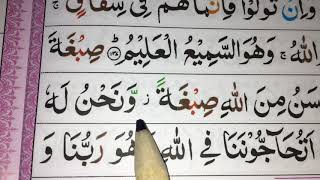 وَاِنْ تَوَلَّوْا فَاِنَّمَا هُمْ فِیْ شِقَاقٍ ۚ
اللّٰهُ ۚ وَهُوَ السَّمِیْعُ الْعَلِیْمُ ؕ ۝۱۳۷ صِبْغَةَ
سَنُ مِنَ اللّٰهِ صِبْغَةً ز وَّنَحْنُ لَهٗ
اَتُحَآجُّوْنَنَا فِی اللّٰهِ هُوَ رَبُّنَا وَ